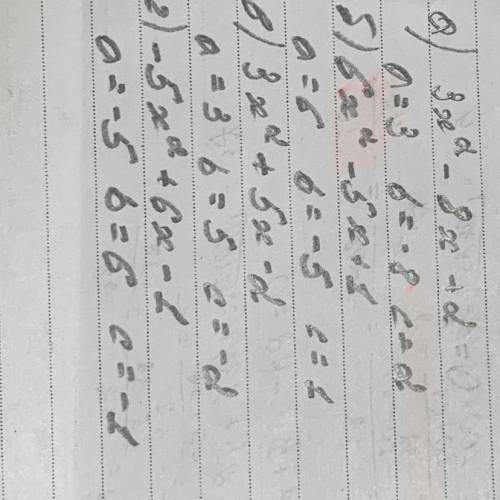 а) 3x² - 8x + 2
a = 3 b = -8 c = 2
б) 6x² - 5x + 1
a = 6 b = -5 c = 1
в) 3x² + 5x - 2
a = 3 b = 5 c = -2
г) -5x² + 6x - 1
a = -5 b = 6 c = -1